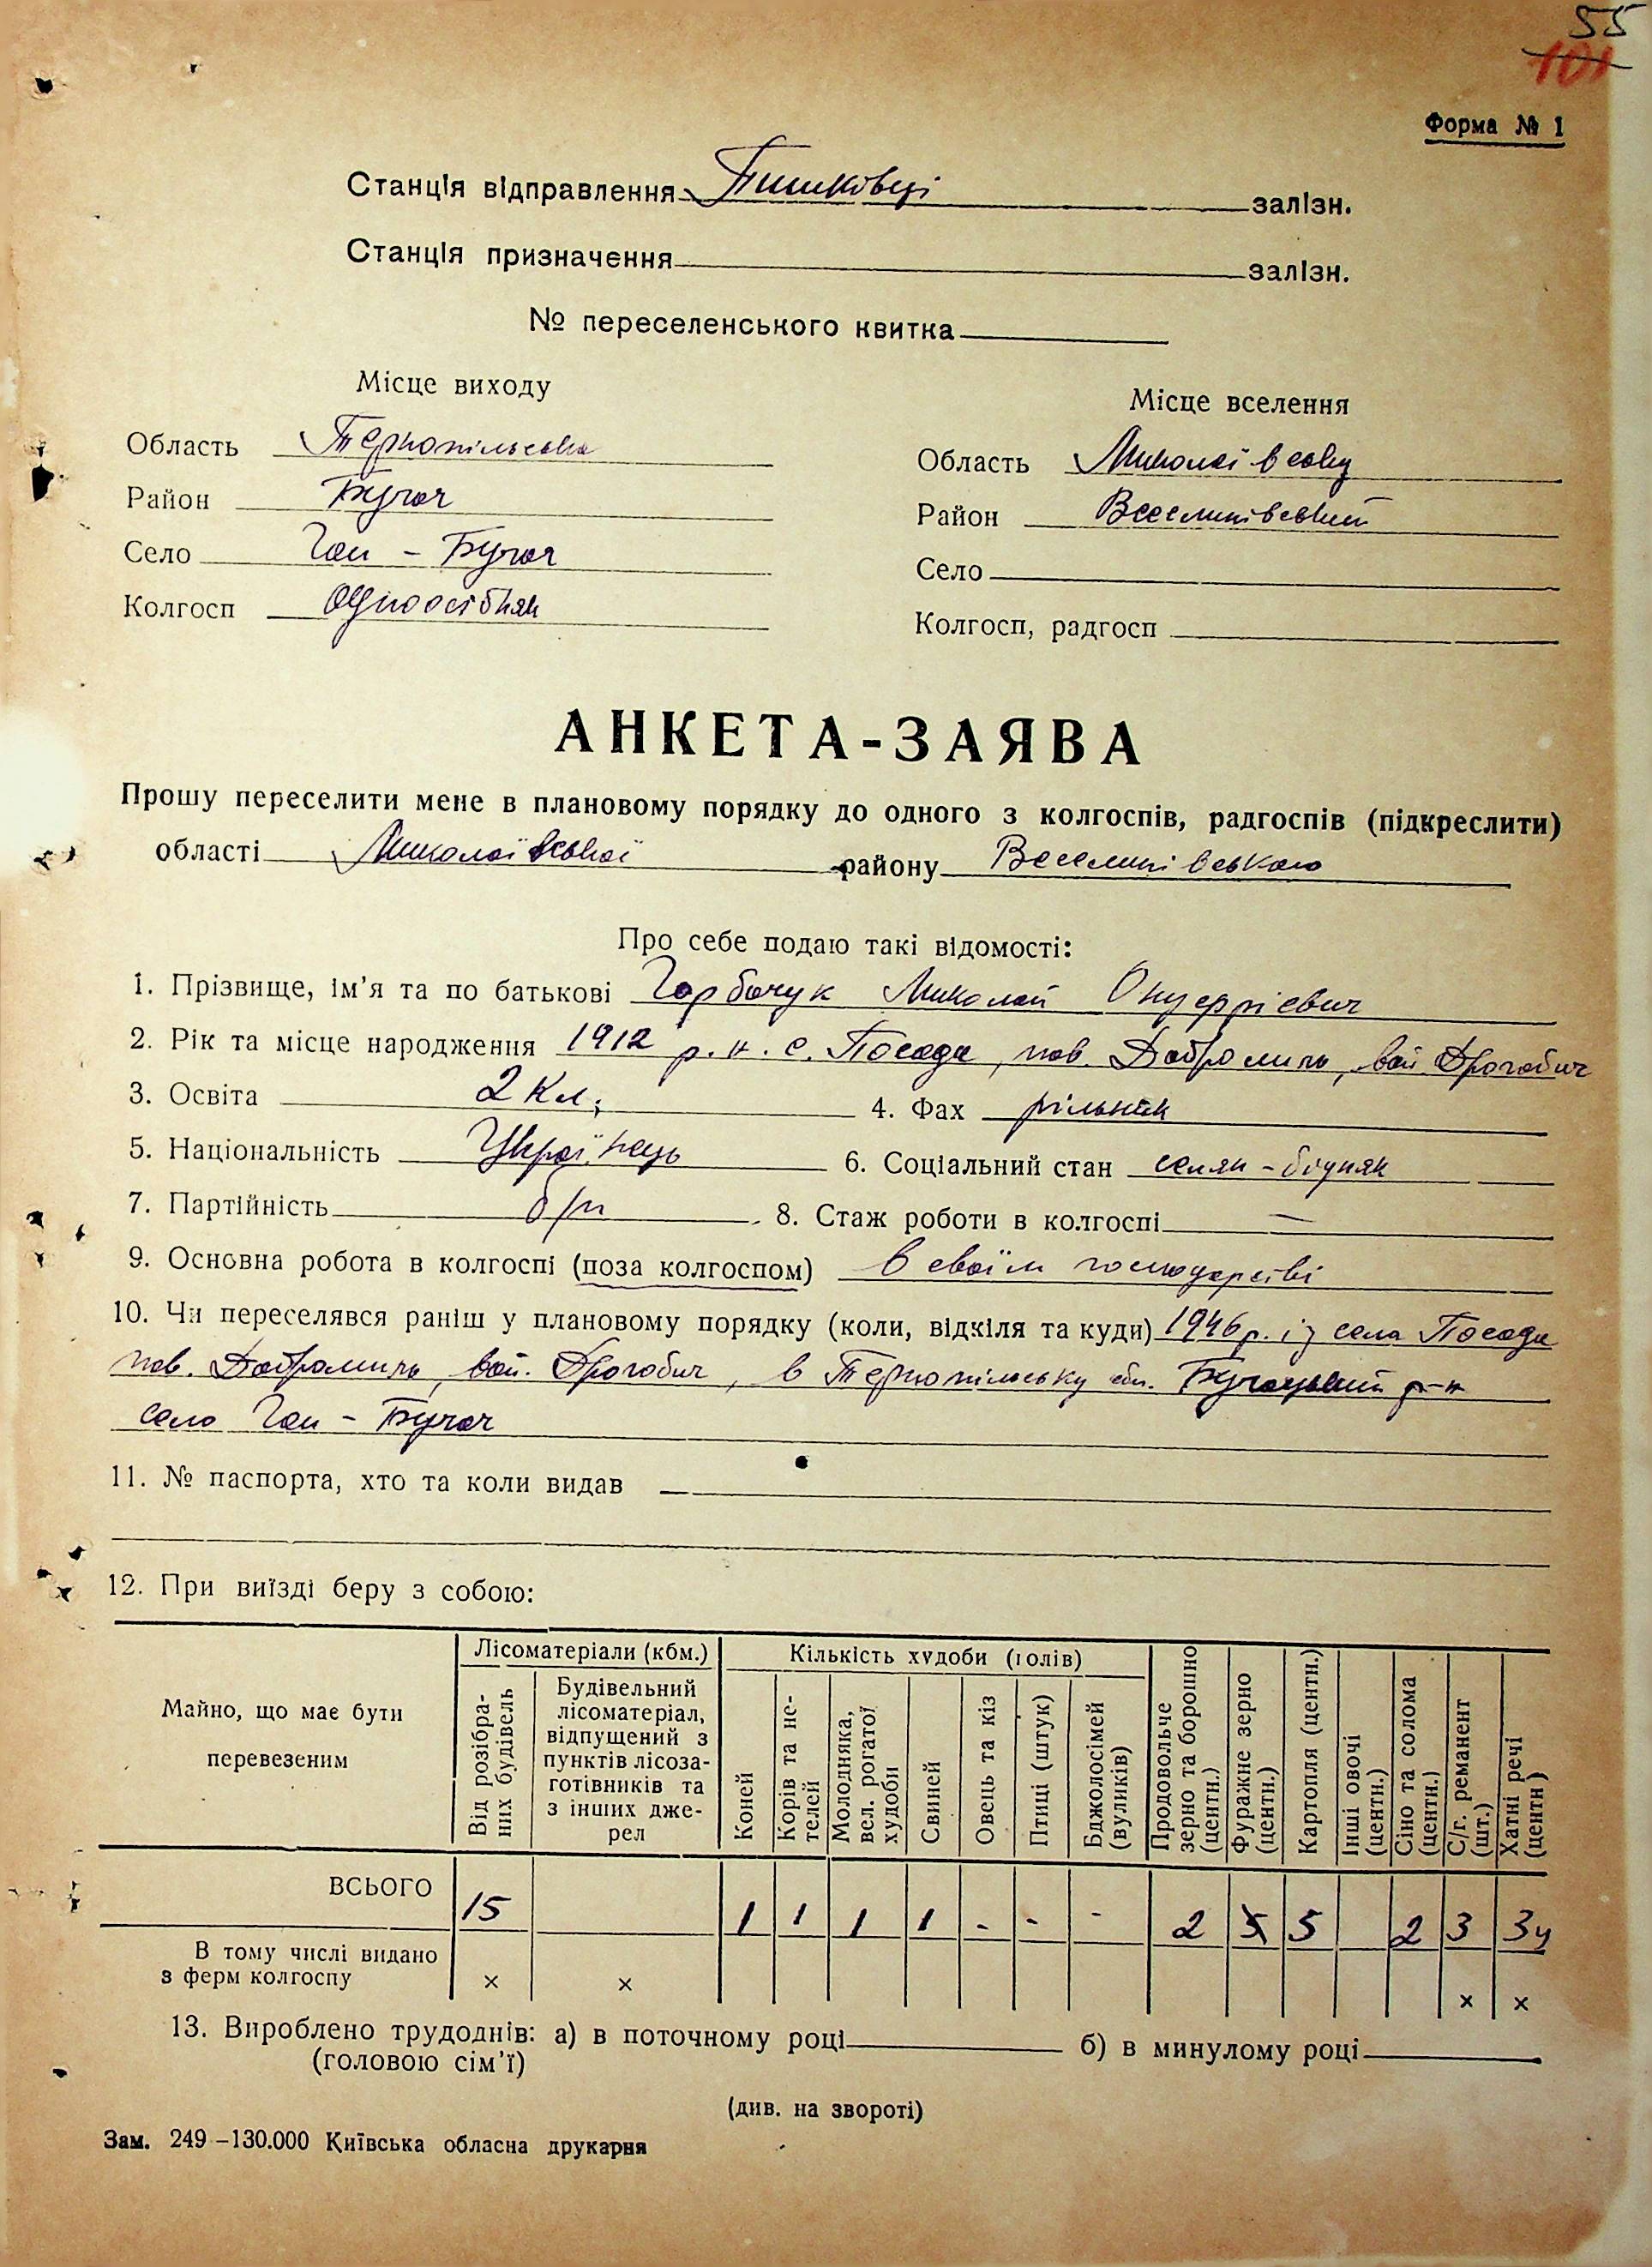 55
101
Форма № 1
Станція відправлення Пишківці залізн.
Станція призначення залізн.
№ переселенського квитка
Місце виходу
Місце вселення
Область Тернопільська
Область Миколаївську
Район Бучач
Район Веселинівський
Село Гаи - Бучач
Село
Колгосп Одноосібняк
Колгосп, радгосп
АНКЕТА-ЗАЯВА
Прошу переселити мене в плановому порядку до одного з колгоспів, радгоспів (підкреслити)
області Миколаївської району Веселинівського
Про себе подаю такі відомості:
1. Прізвище, ім'я та по батькові Горбачук Миколай Онуфрієвич
2. Рік та місце народження 1912 р. н. с. Посада, пов. Добромиль, вой Дрогобич
3. Освіта 2 кл; 4. Фах рільник
5. Національність Українець 6. Соціальний стан селян - бідняк
7. Партійність б/п 8. Стаж роботи в колгоспі —
9. Основна робота в колгоспі (поза колгоспом) в своїм господарстві
10. Чи переселявся раніш у плановому порядку (коли, відкіля та куди) 1946 р. із села Посада
пов. Добромиль, вой. Дрогобич, в Тернопільську обл. Бучацький р-н
село Гаи - Бучач
11. № паспорта, хто та коли видав —
12. При виїзді беру з собою:
Майно, що має бути перевезеним
Лісоматеріали (кбм.)
Кількість худоби (голів)
Від розібраних будівель
Будівельний лісоматеріал, відпущений з пунктів лісозаготівників та з інших джерел
Коней
Корів та нетелей
Молодняка, вел. рогатої худоби
Свиней
Овець та кіз
Птиці (штук)
Бджолосімей (вуликів)
Продовольче зерно та борошно (центн.)
Фуражне зерно (центн.)
Картопля (центн.)
Інші овочі (центн.)
Сіно та солома (центн.)
С/г. реманент (шт.)
Хатні речі (центн)
ВСЬОГО 15 1 1 1 1 - - - 2 5 2 3 3ц
В тому числі видано з ферм колгоспу × × × ×
13. Вироблено трудоднів: а) в поточному році б) в минулому році
(головою сім'ї)
(див. на звороті)
Зам. 249—130.000 Київська обласна друкарня